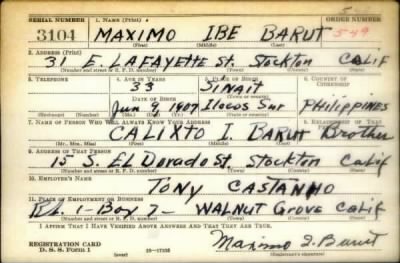 SERIAL NUMBER 1. NAME (Print) ORDER NUMBER
3104 MAXIMO IBE BARUT 549
(First) (Middle) (Last)
2. ADDRESS (Print)
31 E. LAFAYETTE St. Stockton CALIF
(Number and street or R. F. D. number) (Town) (County) (State)
3. TELEPHONE 4. AGE IN YEARS 5. PLACE OF BIRTH 6. COUNTRY OF CITIZENSHIP
33 SINAIT
DATE OF BIRTH (Town or county)
Jun 9 1907 Ilocos Sur PHILIPPINES
(Exchange) (Number) (Mo.) (Day) (Yr.) (State or country)
7. NAME OF PERSON WHO WILL ALWAYS KNOW YOUR ADDRESS 8. RELATIONSHIP OF THAT PERSON
CALIXTO I. BARUT Brother
(Mr., Mrs., Miss) (First) (Middle) (Last)
9. ADDRESS OF THAT PERSON
15 S. EL Dorado St, Stockton Calif
(Number and street or R. F. D. number) (Town) (County) (State)
10. EMPLOYER'S NAME
TONY CASTANHO
11. PLACE OF EMPLOYMENT OR BUSINESS
Rt 1 - Box 7 - WALNUT GROVE Calif
(Number and street or R. F. D. number) (Town) (County) (State)
I AFFIRM THAT I HAVE VERIFIED ABOVE ANSWERS AND THAT THEY ARE TRUE.
REGISTRATION CARD
D. S. S. Form 1 (over) 16-17105 Maximo I. Barut
(Registrant's signature)